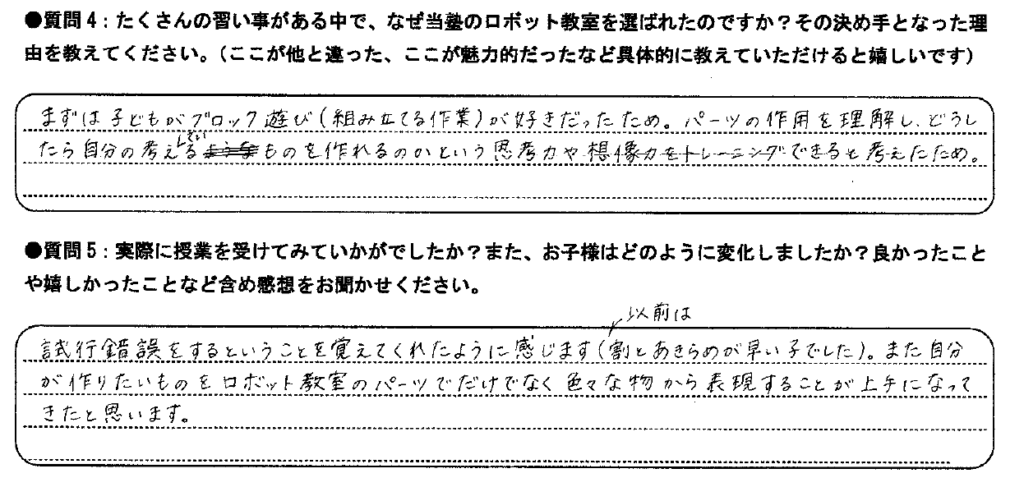 ●質問4:たくさんの習い事がある中で、なぜ当塾のロボット教室を選ばれたのですか?その決め手となった理
由を教えてください。(ここが他と違った、ここが魅力的だったなど具体的に教えていただけると嬉しいです)
まずは子どもがブロック遊び(組み立てる作業)が好きだったため。パーツの作用を理解し、どうし
たら自分の考えるものを作れるのかという思考力や想像力をトレーニングできると考えたため。
●質問5:実際に授業を受けてみていかがでしたか?また、お子様はどのように変化しましたか?良かったこと
や嬉しかったことなど含め感想をお聞かせください。
以前は
試行錯誤をするということを覚えてくれたように感じます(割とあきらめが早い子でした)。また自分
が作りたいものをロボット教室のパーツでだけでなく色々な物から表現することが上手になって
きたと思います。